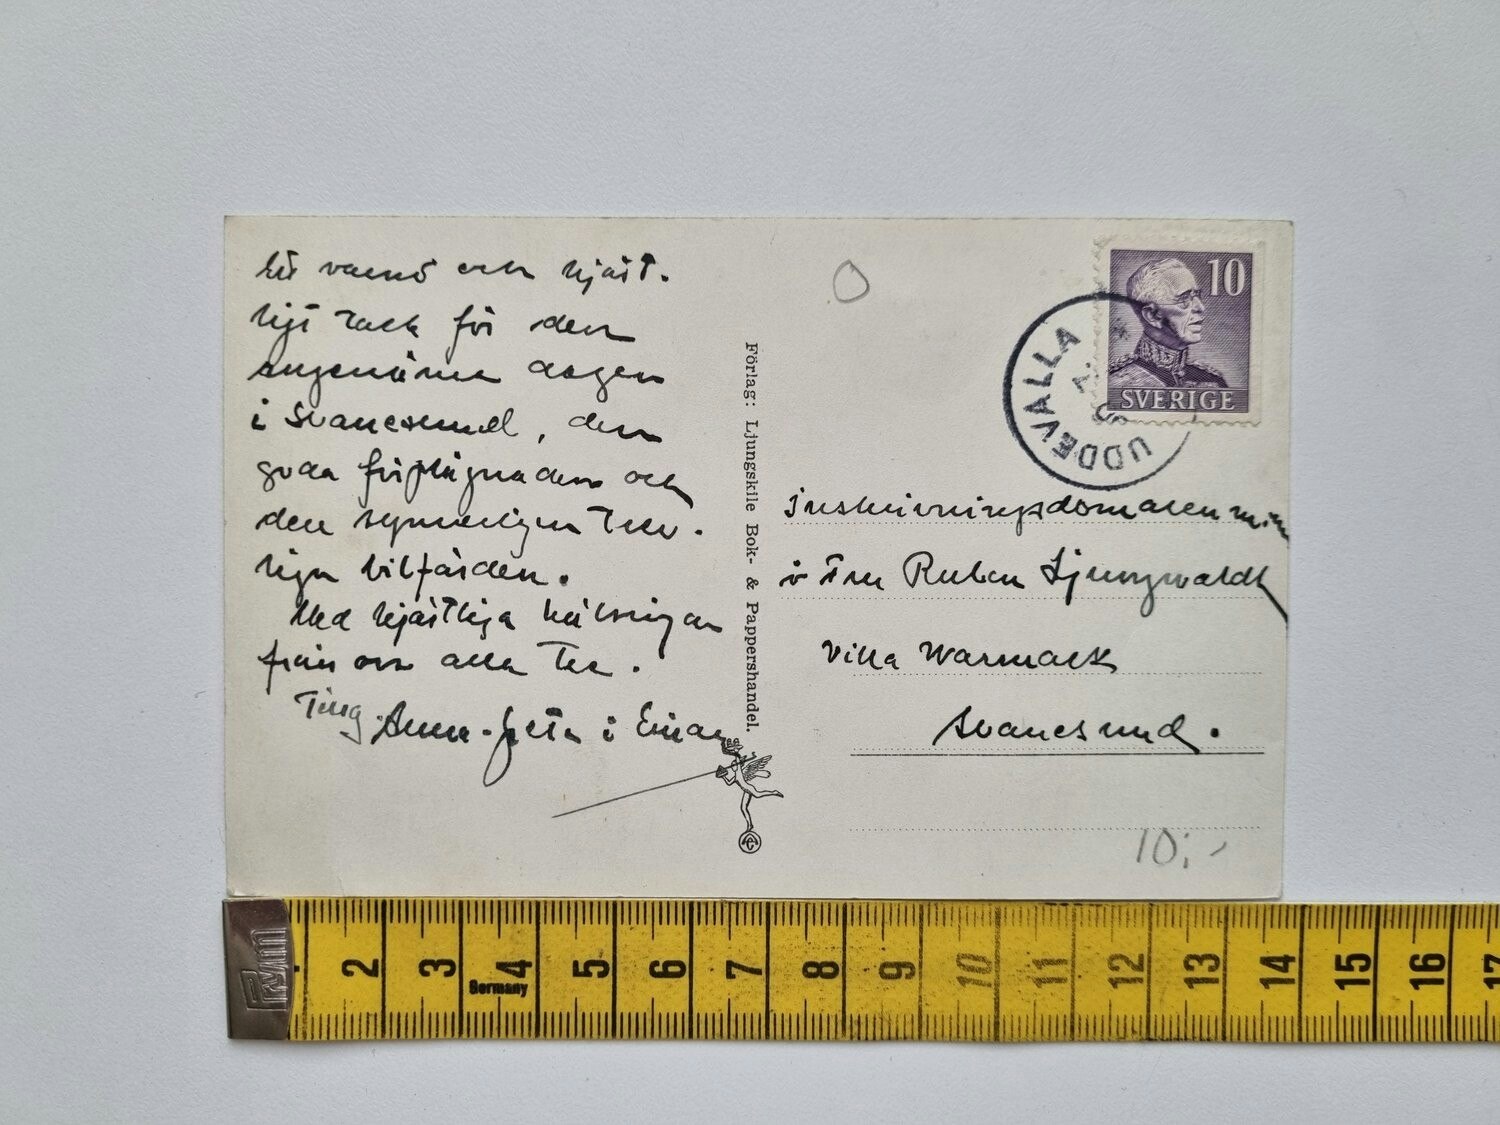 Ett varmt och hjärt-
ligt tack för den
angenäma dagen
i Svanesund, den
goda förplägnaden och
den synnerligen trev-
liga bilfärden.
Med hjärtliga hälsningar
från oss alla tre.
Ting Anna-Greta i Einar
Förlag: Ljungskile Bok- & Pappershandel.
10
SVERIGE
UDDEVALLA
Inskrivningsdomaren m.m.
o Fru Ruben Ljungwaldh
Villa Warmack
Svanesund.
10:-
Prym
2 3 4 5 6 7 8 9 10 11 12 13 14 15 16 17
Germany